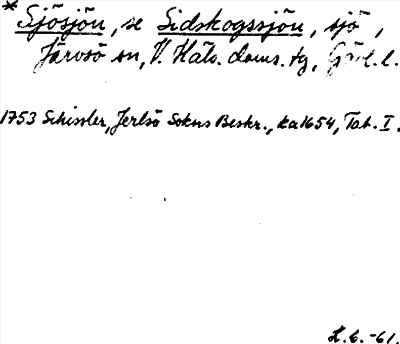 * Sjösjön, se Sidskogssjön, sjö,
Järvsö sn, V. Häls. doms. tg, Gävl. l.
1753 Schissler, Jerlsö Sokns Beskr., ka 1654, Tab. I.
H. G. -61.